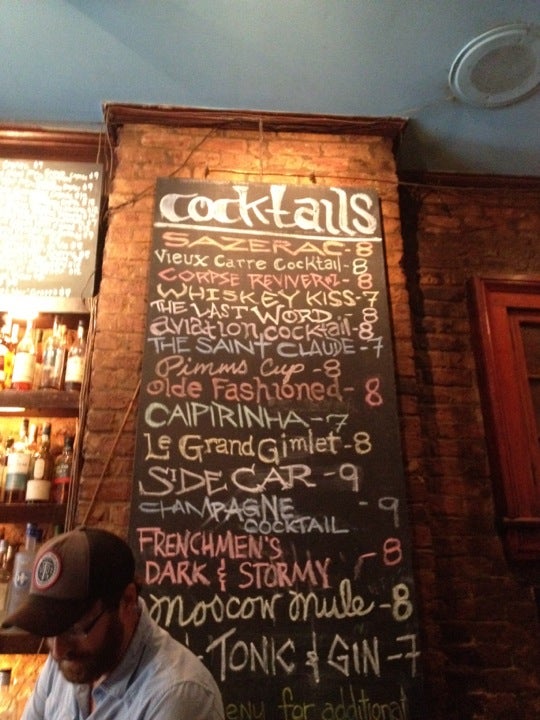 cocktails
SAZERAC - 8
Vieux Carre Cocktail - 8
CORPSE REVIVER #2 - 8
WHISKEY KISS - 7
THE LAST WORD 8
aviation cocktail - 8
THE SAINT CLAUDE - 7
Pimms Cup - 8
Olde Fashioned - 8
CAIPIRINHA - 7
Le Grand Gimlet - 8
SIDE CAR - 9
CHAMPAGNE - 9
COCKTAIL
FRENCHMEN'S - 8
DARK & STORMY
Moscow Mule - 8
TONIC & GIN - 7
enu for additional